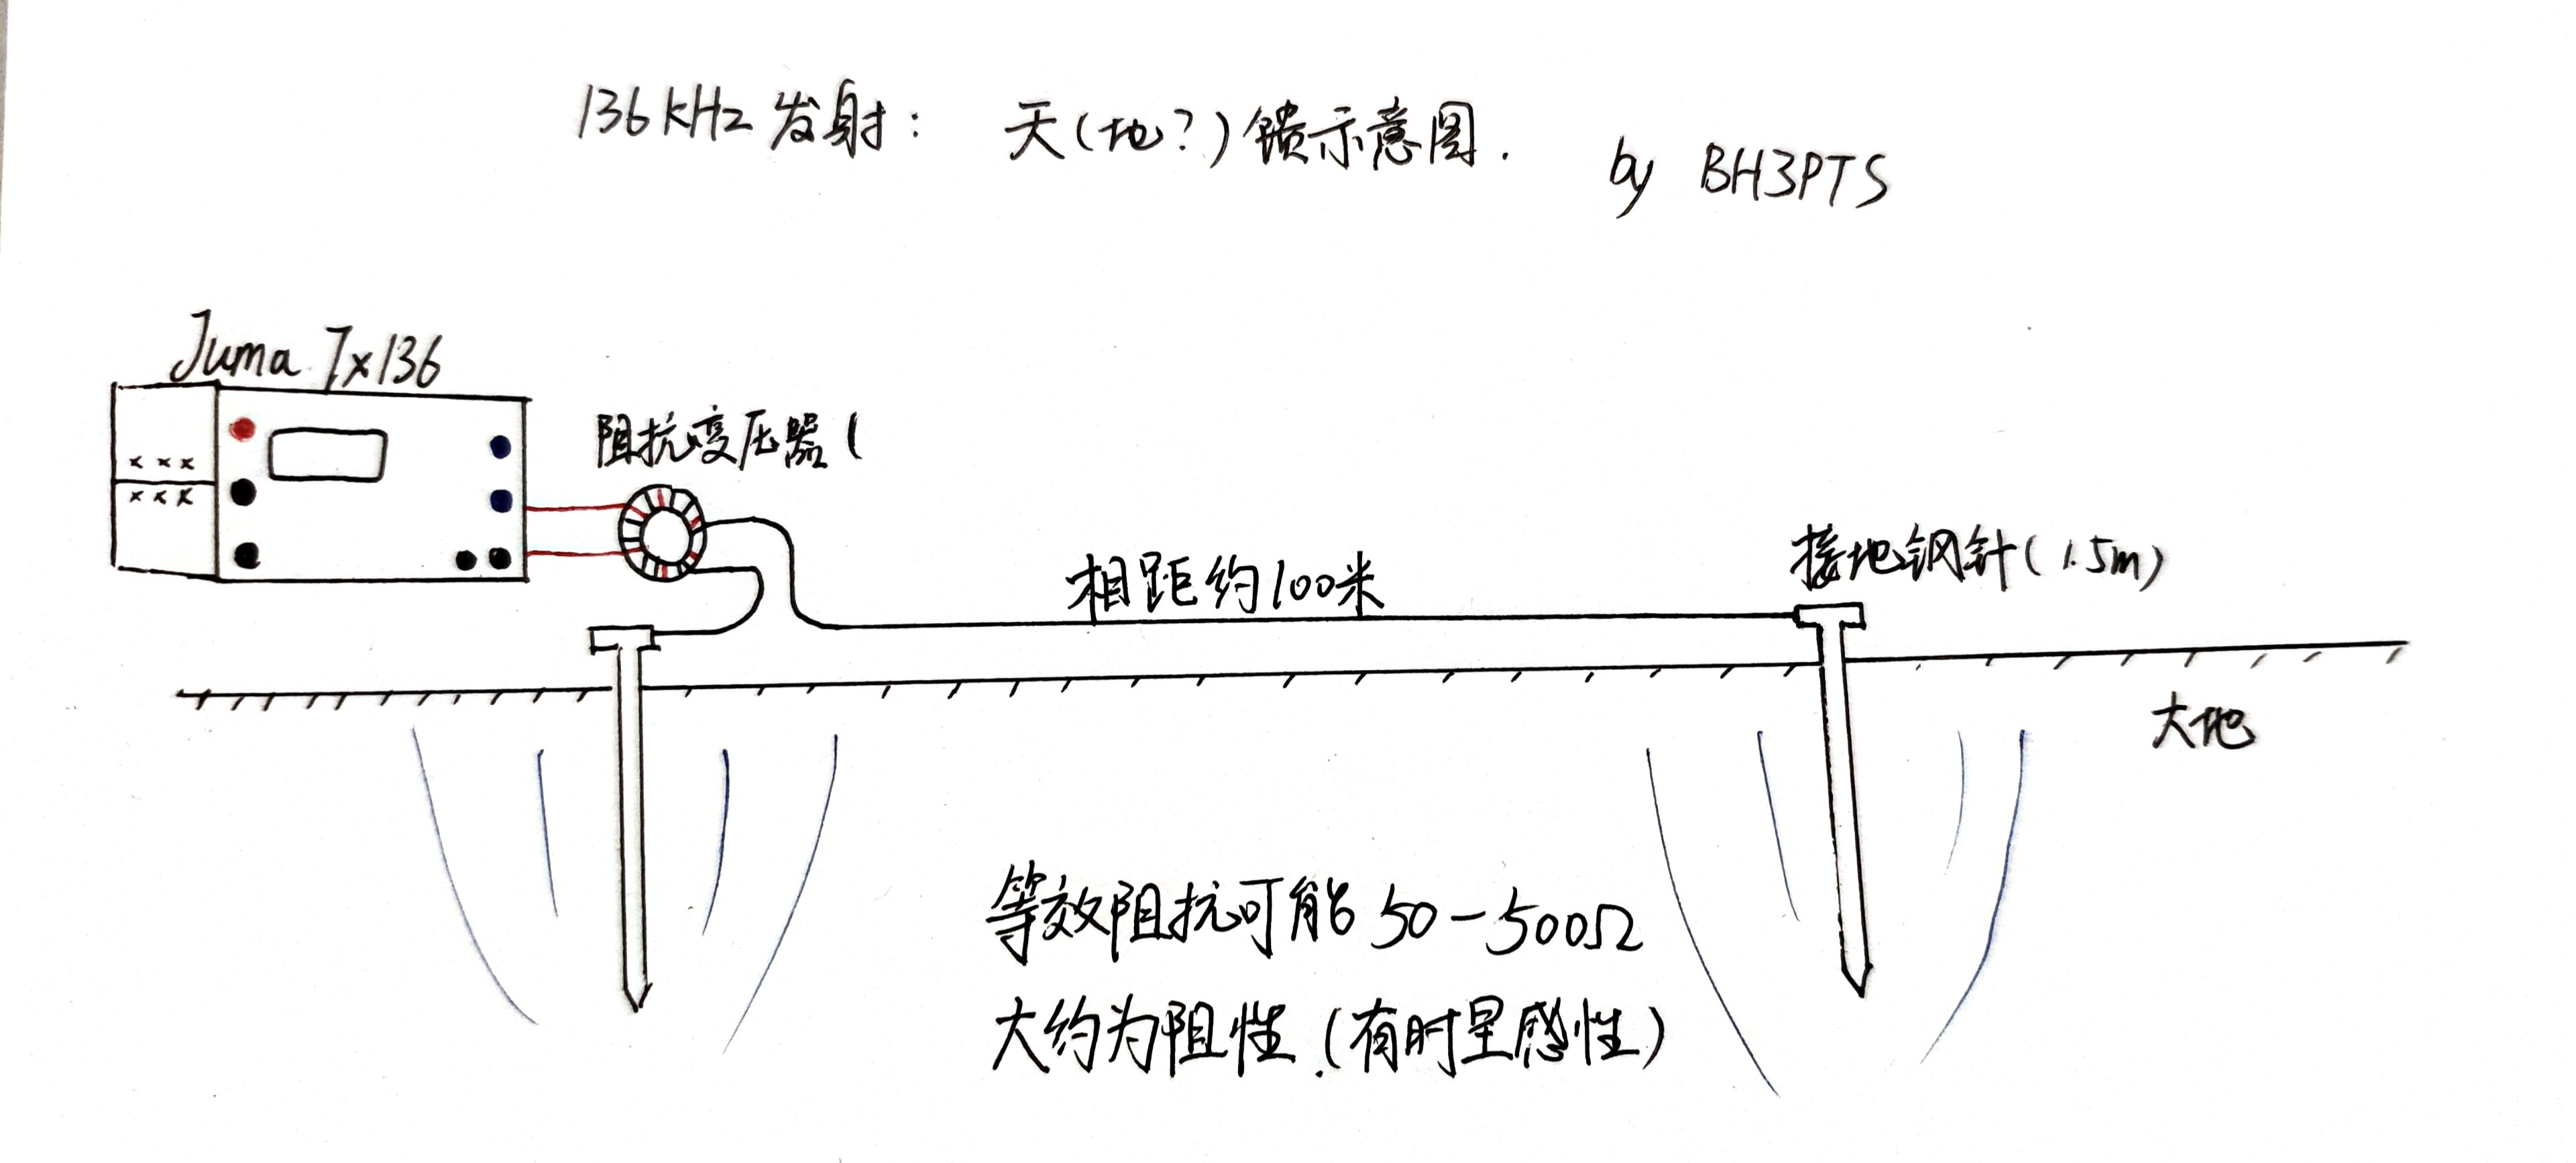 136kHz 发射： 天（地？）馈示意图．
by BH3PTS
Juma Tx136
阻抗变压器（
相距约100米
接地钢针（1.5m）
大地
等效阻抗可能50－500Ω
大约为阻性．（有时呈感性）